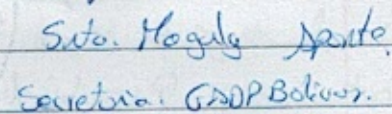 Srta. Magaly Aponte
Secretaria. GADP Bolívar.